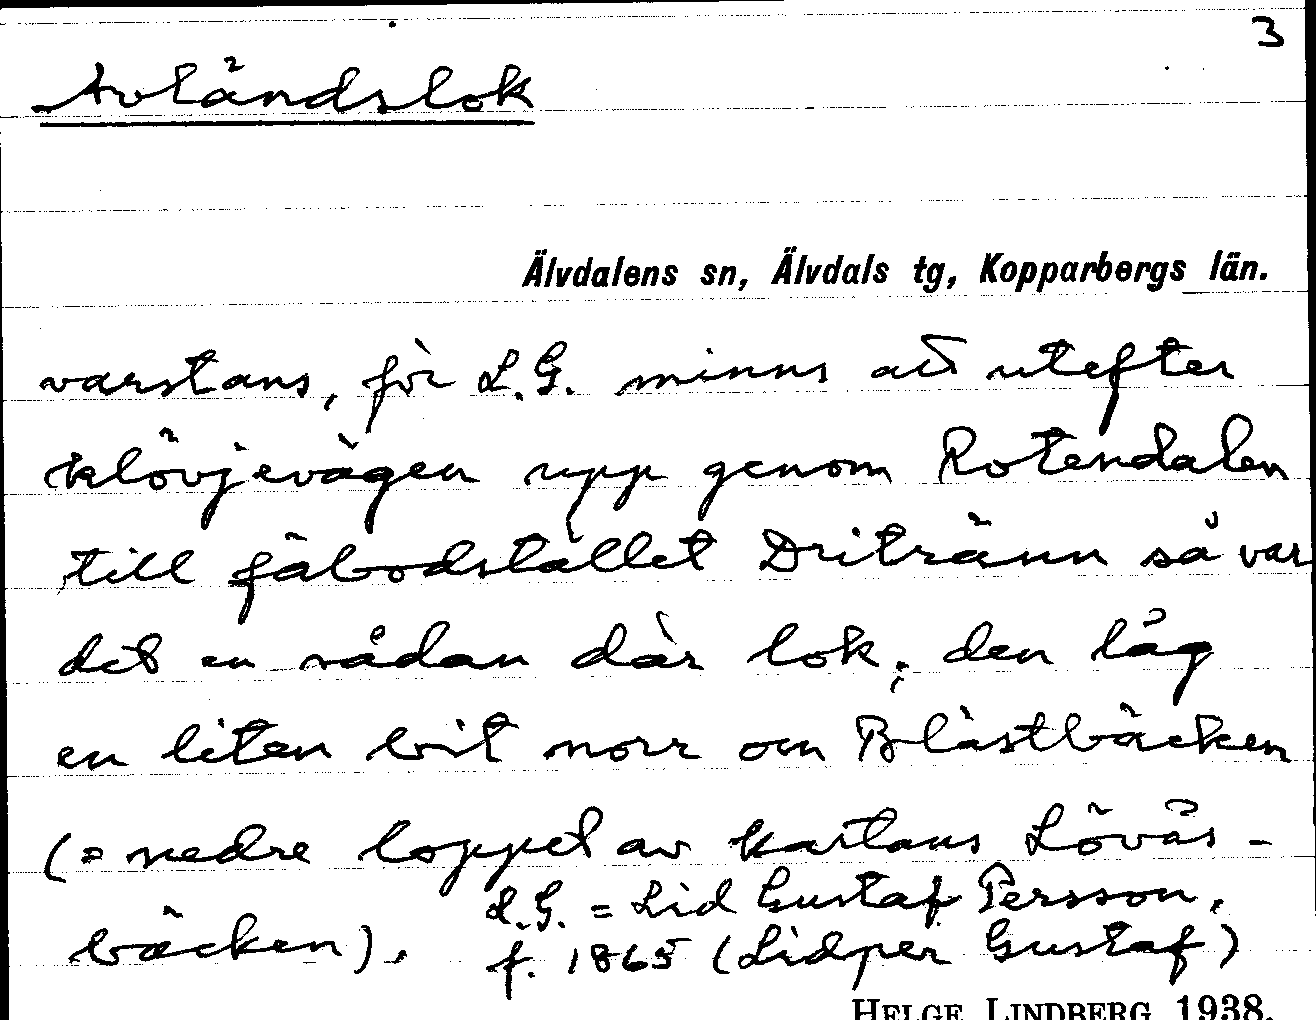 3
Avländslok
Älvdalens sn, Älvdals tg, Kopparbergs län.
varstans, för L.G. minns att utefter
klövjevägen upp genom Rotendalen
till fäbodstället Dritränn så var
det en sådan där lok; den låg
en liten bit norr om Blästbäcken
(= nedre loppet av kartans Lövås-
bäcken).
L.G. = Lid Gustaf Persson,
f. 1865 (Lidper Gustaf)
HELGE LINDBERG 1938.